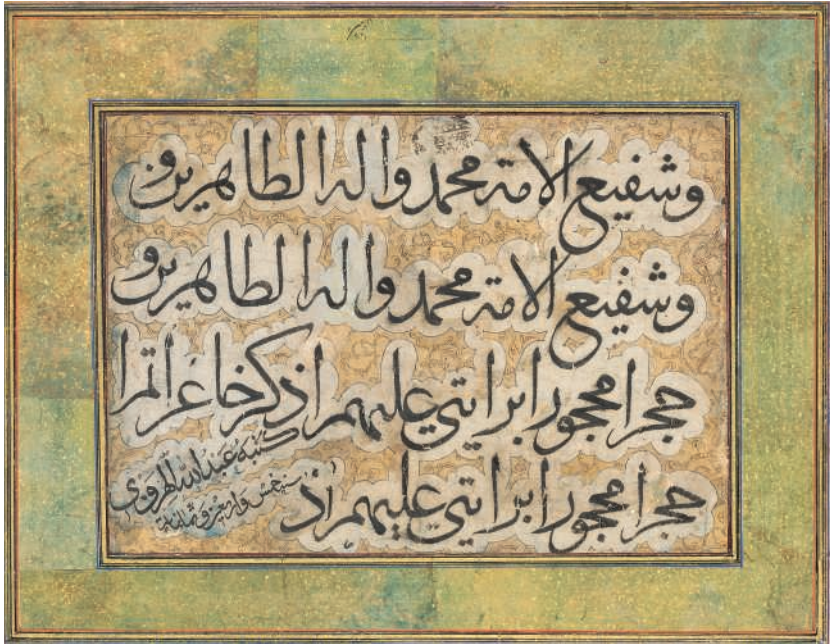 وشفيع الامة محمد واله الطاهرين و
وشفيع الامة محمد واله الطاهرين و
حجرا محجورا برايتي عليهم اذكر خا عر اتمرا
حجرا محجورا برايتي عليهم اذ
كتبه عبد الله الهروي
سنة خمس واربعين وثمانمائة